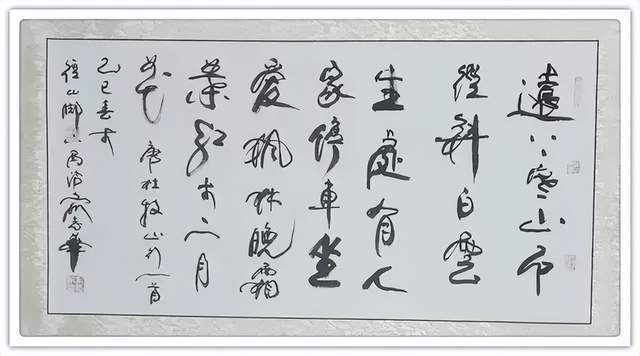 遠上寒山石
徑斜白雲
生處有人
家停車坐
愛楓林晚霜
葉紅於二月
花 唐杜牧山行一首
乙巳春於
徑山腳下